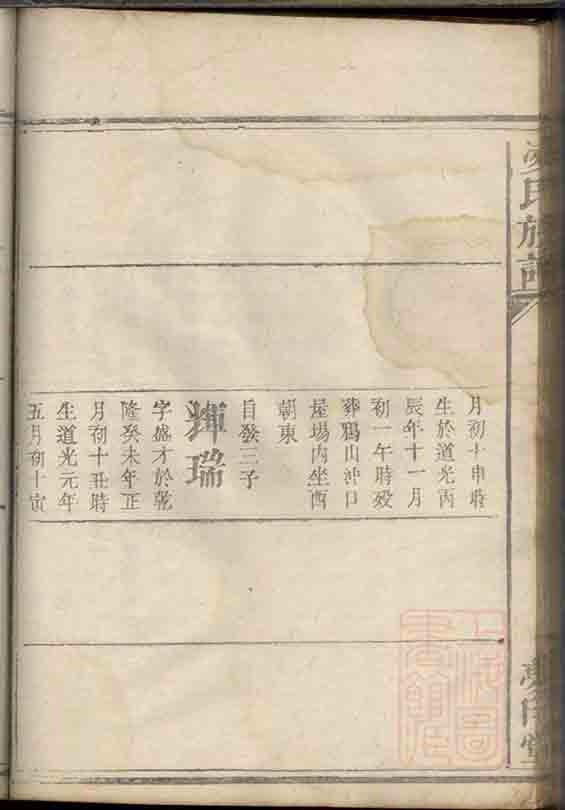 氏族譜
月初十申時
生於道光丙
辰年十一月
初一午時歿
葬鴉山沖口
屋場內坐酉
朝東
自發三子
瑞
字盛才於乾
隆癸未年正
月初十丑時
生道光元年
五月初十寅
堂
上海圖書館藏